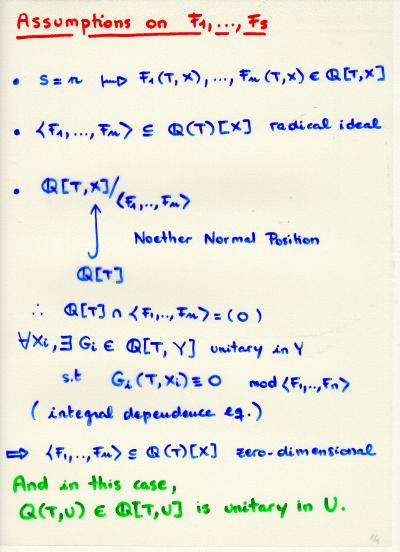 Assumptions on F₁,...,Fs
• s = n ⟼ F₁(T,X),...,Fₙ(T,X) ∈ ℚ[T,X]
• ⟨F₁,...,Fₙ⟩ ⊆ ℚ(T)[X] radical ideal
• ℚ[T,X]/⟨F₁,..,Fₙ⟩
Noether Normal Position
ℚ[T]
∴ ℚ[T] ∩ ⟨F₁,..,Fₙ⟩ = (0)
∀Xᵢ, ∃ Gᵢ ∈ ℚ[T,Y] unitary in Y
s.t Gᵢ(T,Xᵢ) ≡ 0 mod ⟨F₁,..,Fₙ⟩
( integral dependence eq.)
⟹ ⟨F₁,..,Fₙ⟩ ⊆ ℚ(T)[X] zero-dimensional
And in this case,
Q(T,U) ∈ ℚ[T,U] is unitary in U.